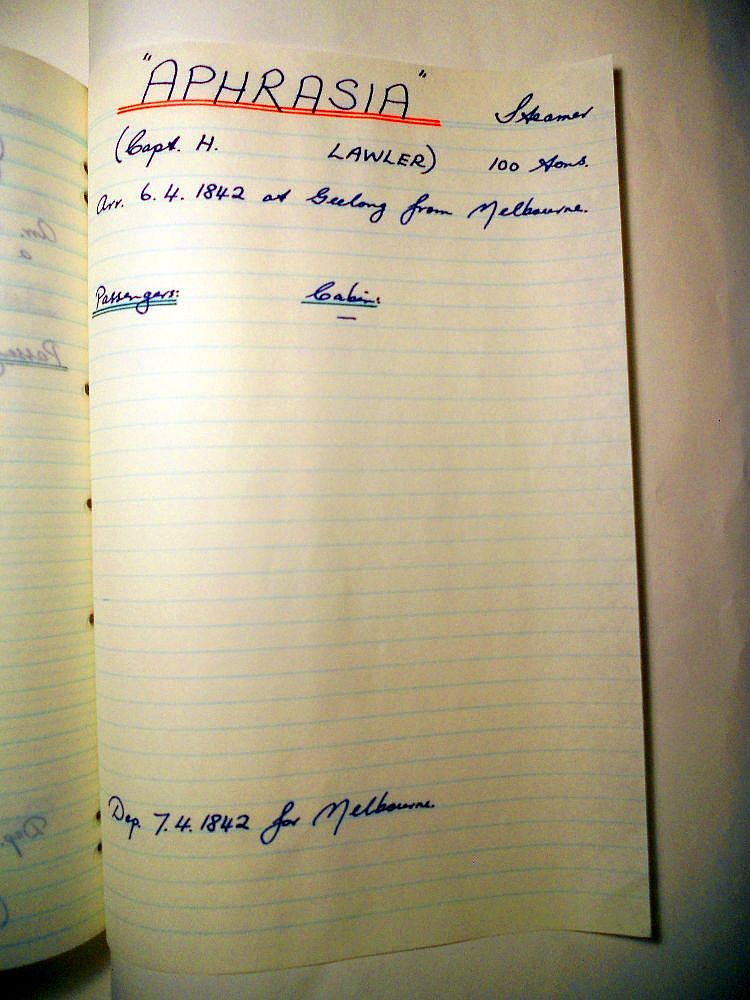 "APHRASIA" Steamer
(Capt. H. LAWLER) 100 tons.
Arr. 6.4.1842 at Geelong from Melbourne.
Passengers: Cabin:
—
Dep. 7.4.1842 for Melbourne.